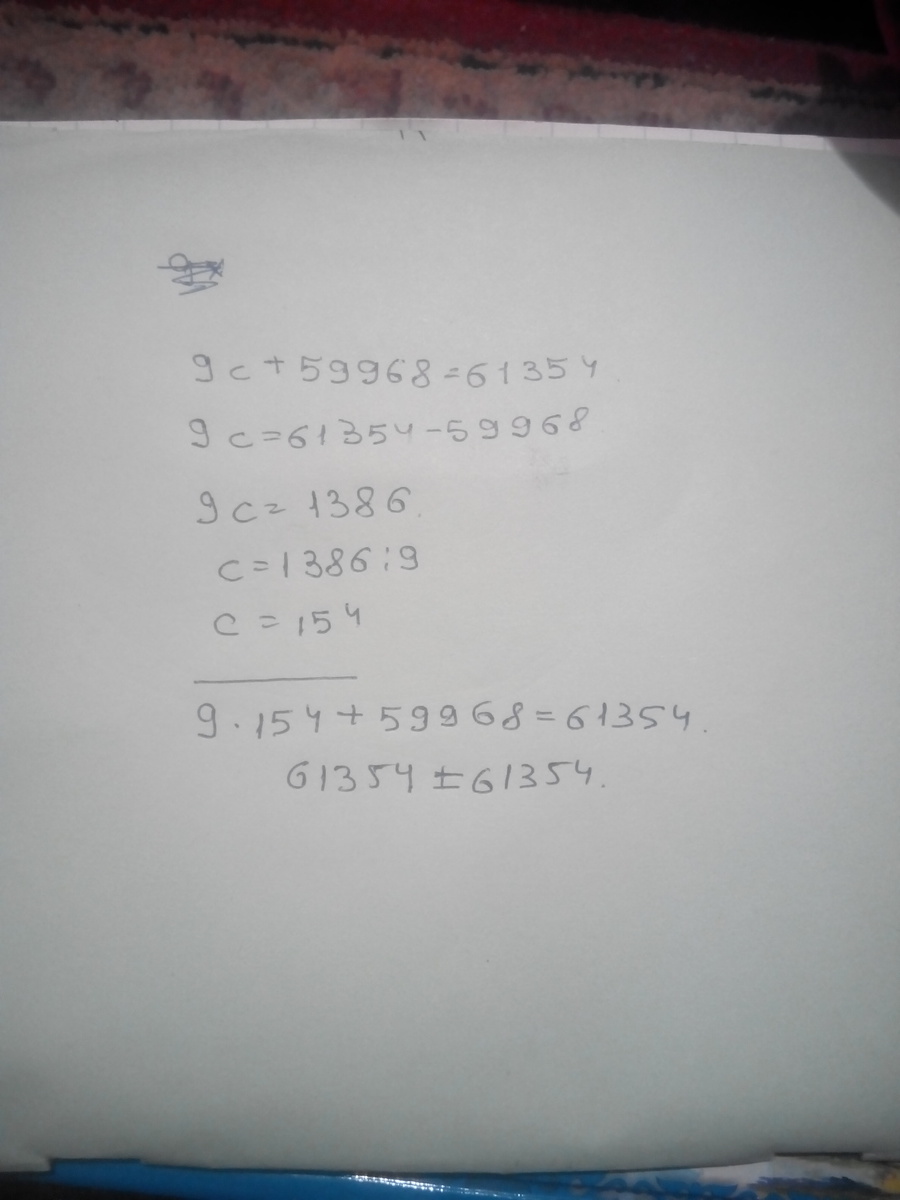 9c+59968=61354
9c=61354-59968
9c=1386.
c=1386:9
c=154
9·154+59968=61354.
61354±61354.